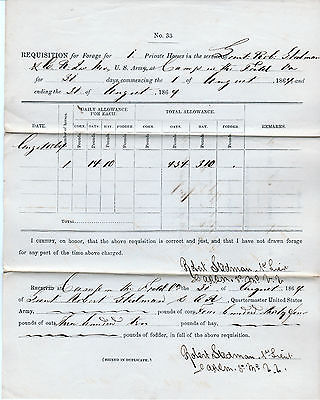 No. 33
REQUISITION for Forage for 1. Private Horses in the service Lieut Rob. Stedman
U. S. Army, at Camp in the Field Va
for 31 days, commencing the 1 of August, 1864, and
ending the 31 of August, 1864
DAILY ALLOWANCE FOR EACH. TOTAL ALLOWANCE.
DATE. CORN. OATS. HAY. FODDER. CORN. OATS. HAY. FODDER. REMARKS.
Pounds. Pounds. Pounds. Pounds. Pounds. Pounds. Pounds. Pounds.
1 14 10 434 310
TOTAL
I CERTIFY, on honor, that the above requisition is correct and just, and that I have not drawn forage
for any part of the time above charged.
Robert Stedman 1st Lieut
RECEIVED at Camp in the Field Va the 31 of August 1864,
of Lieut Robert Stedman Quartermaster United States
Army, pounds of corn Four hundred thirty four
pounds of oats, three hundred ten pounds of hay,
pounds of fodder, in full of the above requisition.
[SIGNED IN DUPLICATE.]
Robert Stedman 1st Lieut